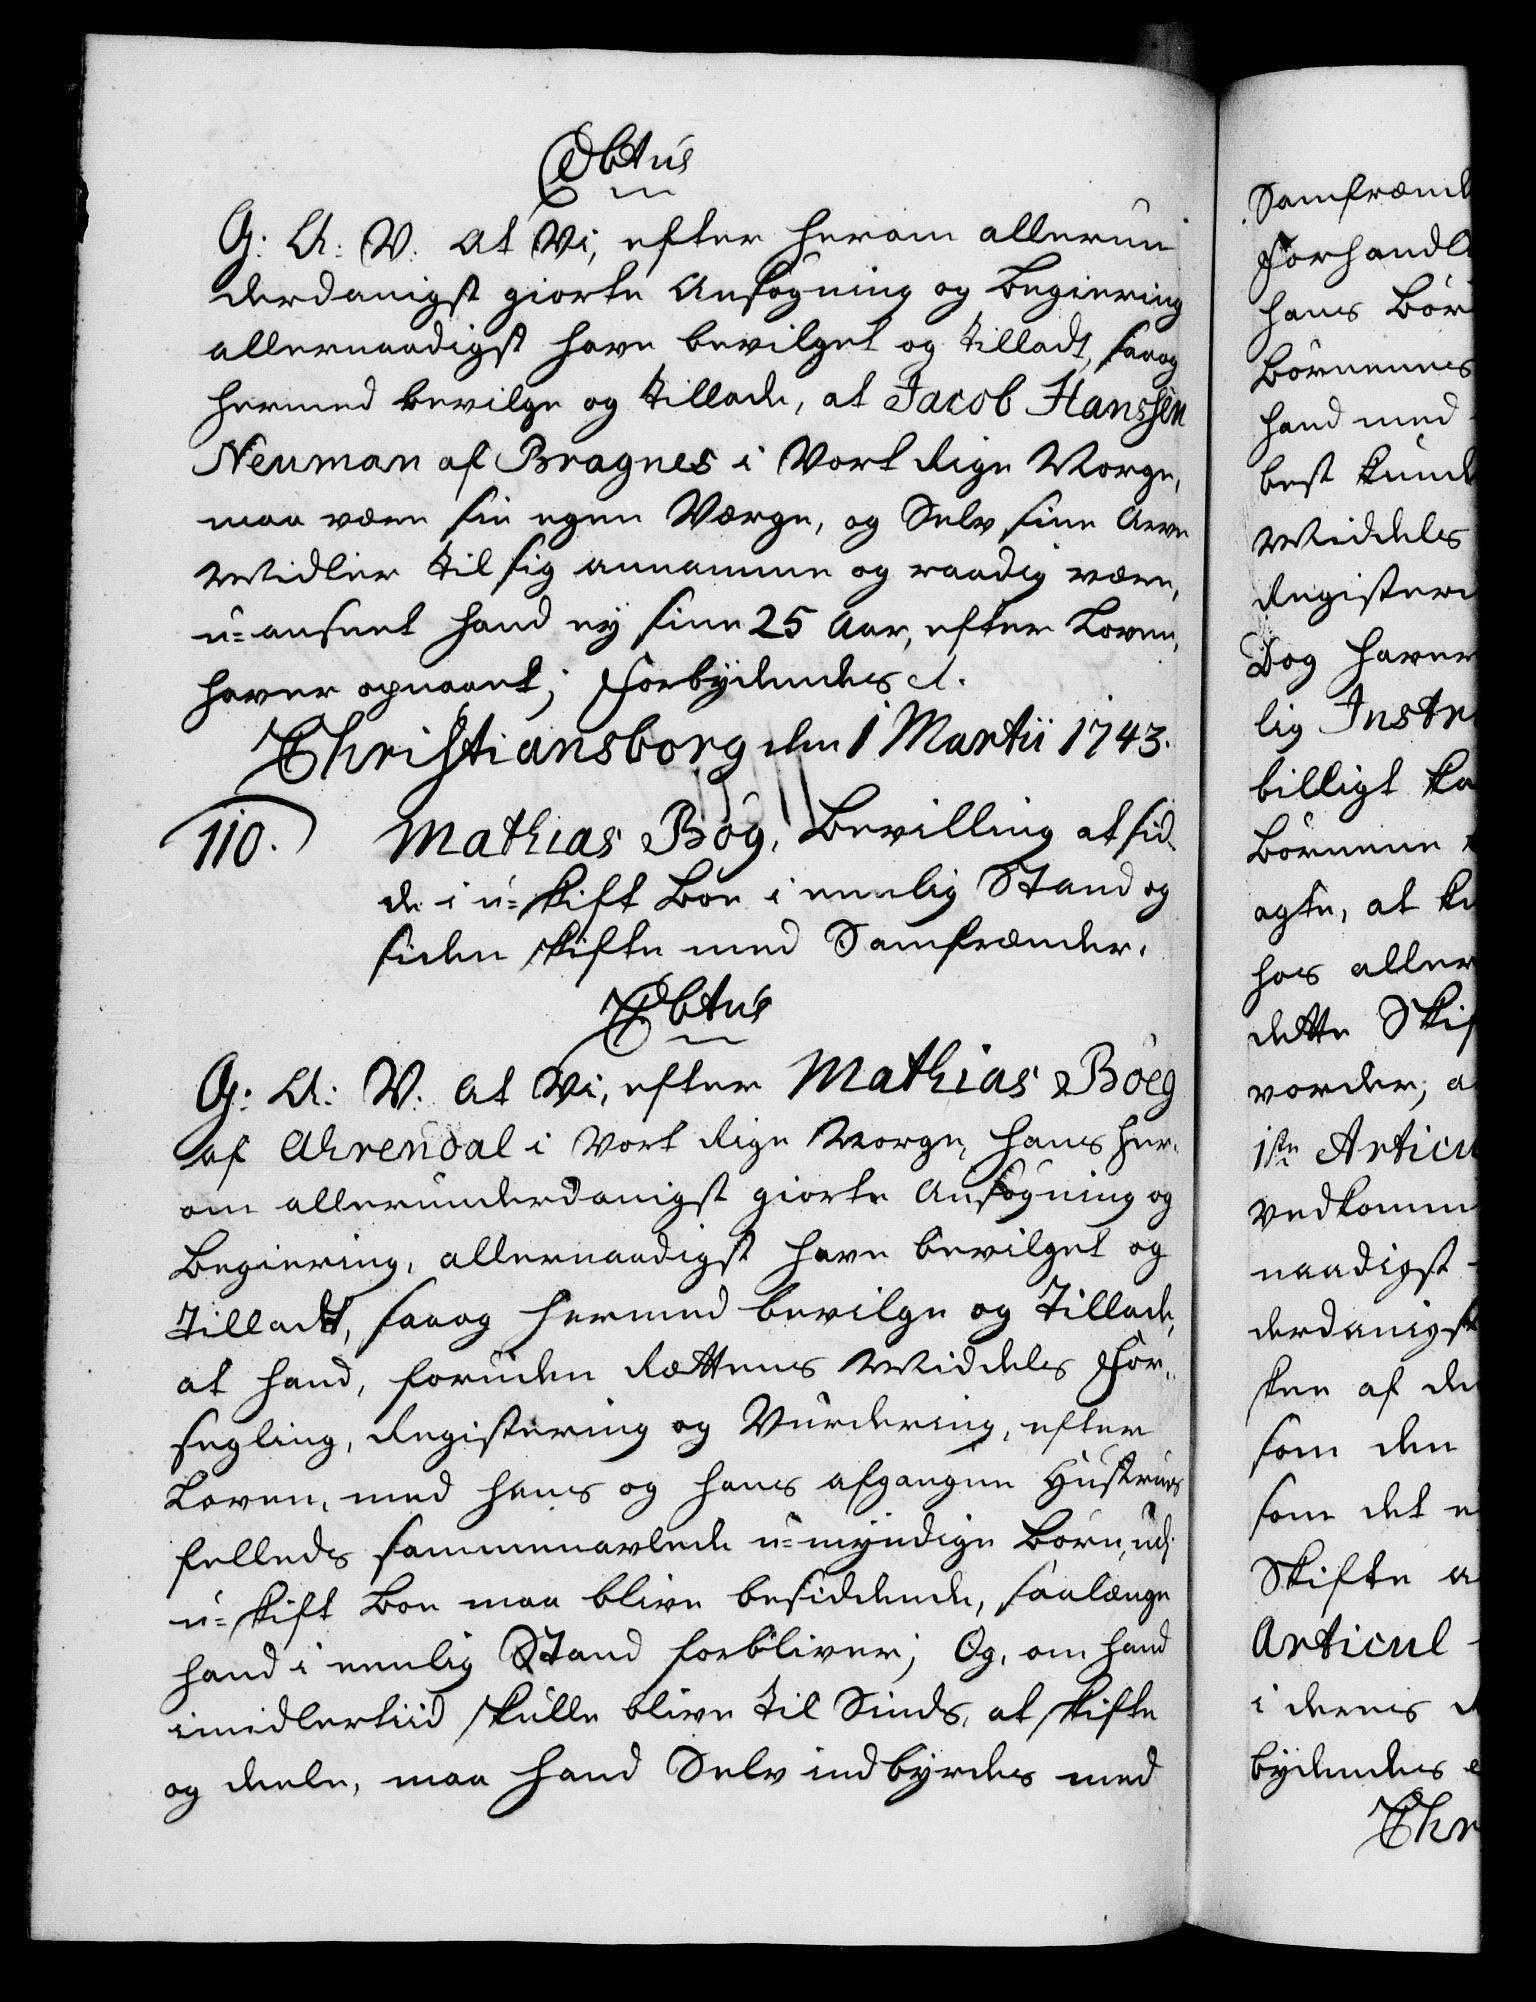 CObtus
G: A: V. at Vi, efter herom allerun
derdanigst giorte Ansøgning og Begiering
allernaadigst have bevilget og tilladt, saaog
hermed bevilge og tillade, at Jacob Hanssen
Neuman af Bragnes i Vort Rige Norge,
maa være sin egen Værge, og Selv sine Arve
Midler til sig annamme og raadig være,
u-anseet hand ey sine 25 Aar, efter Loven,
haver opnaaet; Forbydendes etc.
Christiansborg den 1 Martii 1743.
110.
Mathias Bøg, Bevilling at sid-
de i u-skift Boe i eenlig Stand og
siden skifte med Samfrænder.
CObtus
G: A: V. at Vi, efter Mathias Bøeg
af Ahrendal i Vort Rige Norge, hans her-
om allerunderdanigst giorte Ansøgning og
Begiering, allernaadigst have bevilget og
Tilladt, saaog hermed bevilge og Tillade,
at hand, foruden Rættens Middels For-
segling, Registering og Vurdering, efter
Loven, med hans og hans afgangne Hustrues
felleds sammenavlede u-myndige Børn, udi
u-skift Boe maa blive besiddende, saalænge
hand i eenlig Stand forbliver; Og, om hand
imidlertiid skulle blive til Sinds, at skifte
og deele, maa hand Selv indbyrdes med
Samfrænd
Forhandl
hans Bør
Børnenes
hand med
best kund
Middels
Registeri
Dog haver
lig Instr
billigt ka
Børnene
agte, at
hos aller
dette Skif
vorder; a
1ste Articu
Vedkomm
naadigst
derdanigst
skee af de
som den
som det e
Skifte a
Articul
i deres
bydendes
Chr